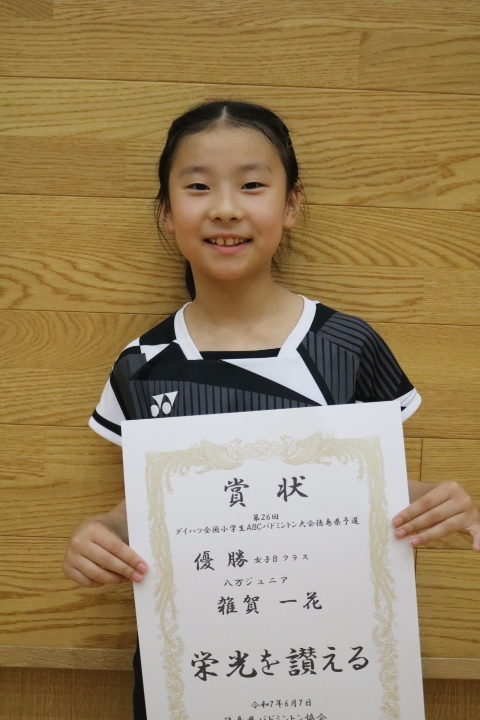 賞状
第26回
ダイハツ全国小学生ABCバドミントン大会徳島県予選
優勝 女子Bクラス
八万ジュニア
雑賀 一花
栄光を讃える
令和7年6月7日
徳島県バドミントン協会